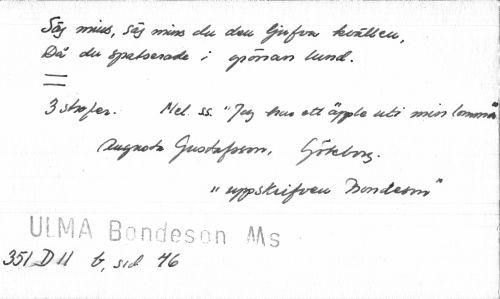 Säj mins, säj mins du den ljufva kvällen,
Då du spatserade i grönan lund.
3 strofer. Mel. ss. "Jag har ett äpple uti min lomma"
Augusta Gustafsson, Göteborg.
"uppskrifven Bondeson"
ULMA Bondeson Ms
351 D 11 b, sid 46